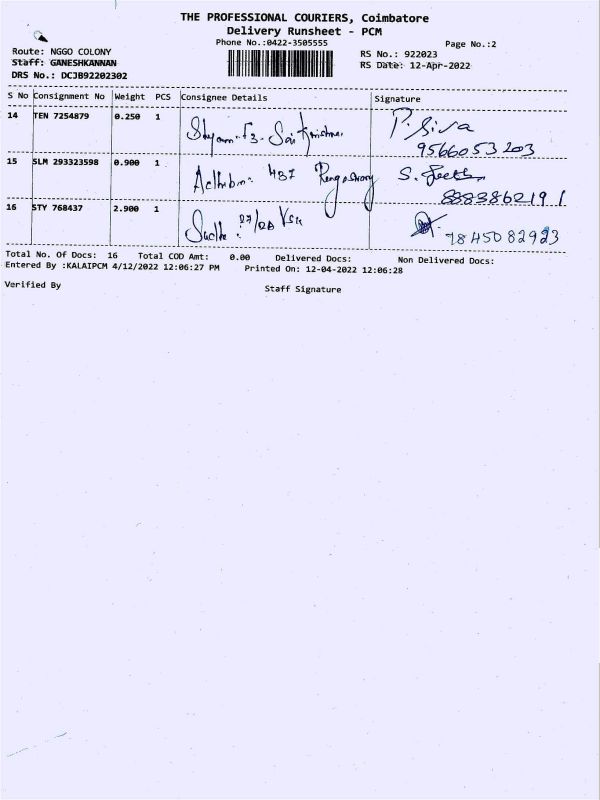 THE PROFESSIONAL COURIERS, Coimbatore
Delivery Runsheet - PCM
Phone No.:0422-3505555
Page No.:2
Route: NGGO COLONY
RS No.: 922023
Staff: GANESHKANNAN
RS Date: 12-Apr-2022
DRS No.: DCJB92202302
S No Consignment No Weight PCS Consignee Details Signature
14 TEN 7254879 0.250 1 P. Siva
9566053203
15 SLM 293323598 0.900 1 S.
8883862191
16 STY 768437 2.900 1
9845082923
Total No. Of Docs: 16 Total COD Amt: 0.00 Delivered Docs: Non Delivered Docs:
Entered By :KALAIPCM 4/12/2022 12:06:27 PM Printed On: 12-04-2022 12:06:28
Verified By Staff Signature